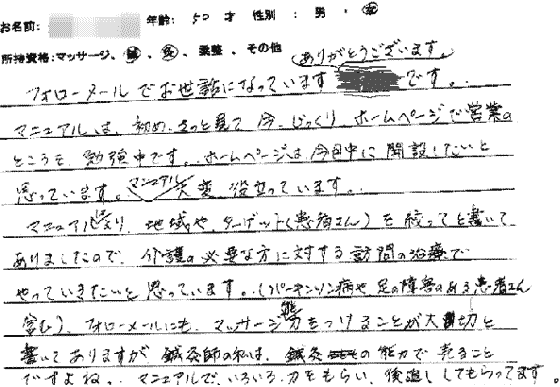 お名前: 年齢: 50 才 性別: 男 ・ 女
所持資格:マッサージ、鍼、灸、柔整、その他
ありがとうございます。
フォローメールでお世話になっています です。
マニュアルは、初め、さっと見て今、じっくり、ホームページで営業の
ところを勉強中です。ホームページは今月中に開設したいと
思っています。マニュアル大変役立っています。
マニュアルにより、地域や、ターゲット(患者さん)を絞ってと書いて
ありましたので、介護の必要な方に対する訪問の治療で
やっていきたいと思っています。(パーキンソン病や足の障害のある患者さん
含む)、フォローメールにも、マッサージ能力をつけることが大切と
書いてありますが鍼灸師の私は、鍼灸の能力で売ること
ですよね。マニュアルで、いろいろ力をもらい、後退ししてもらってます